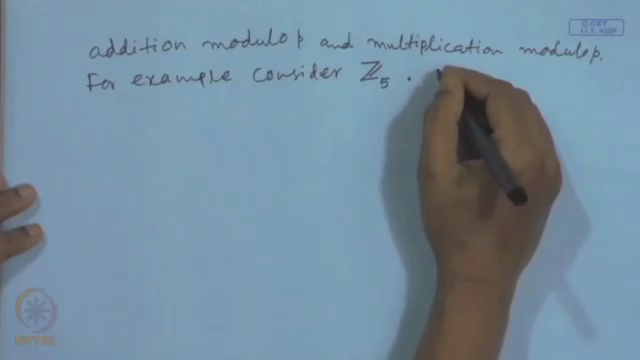 © CET
I.I.T. KGP
addition modulo p and multiplication modulo p.
For example consider ℤ₅.
NPTEL